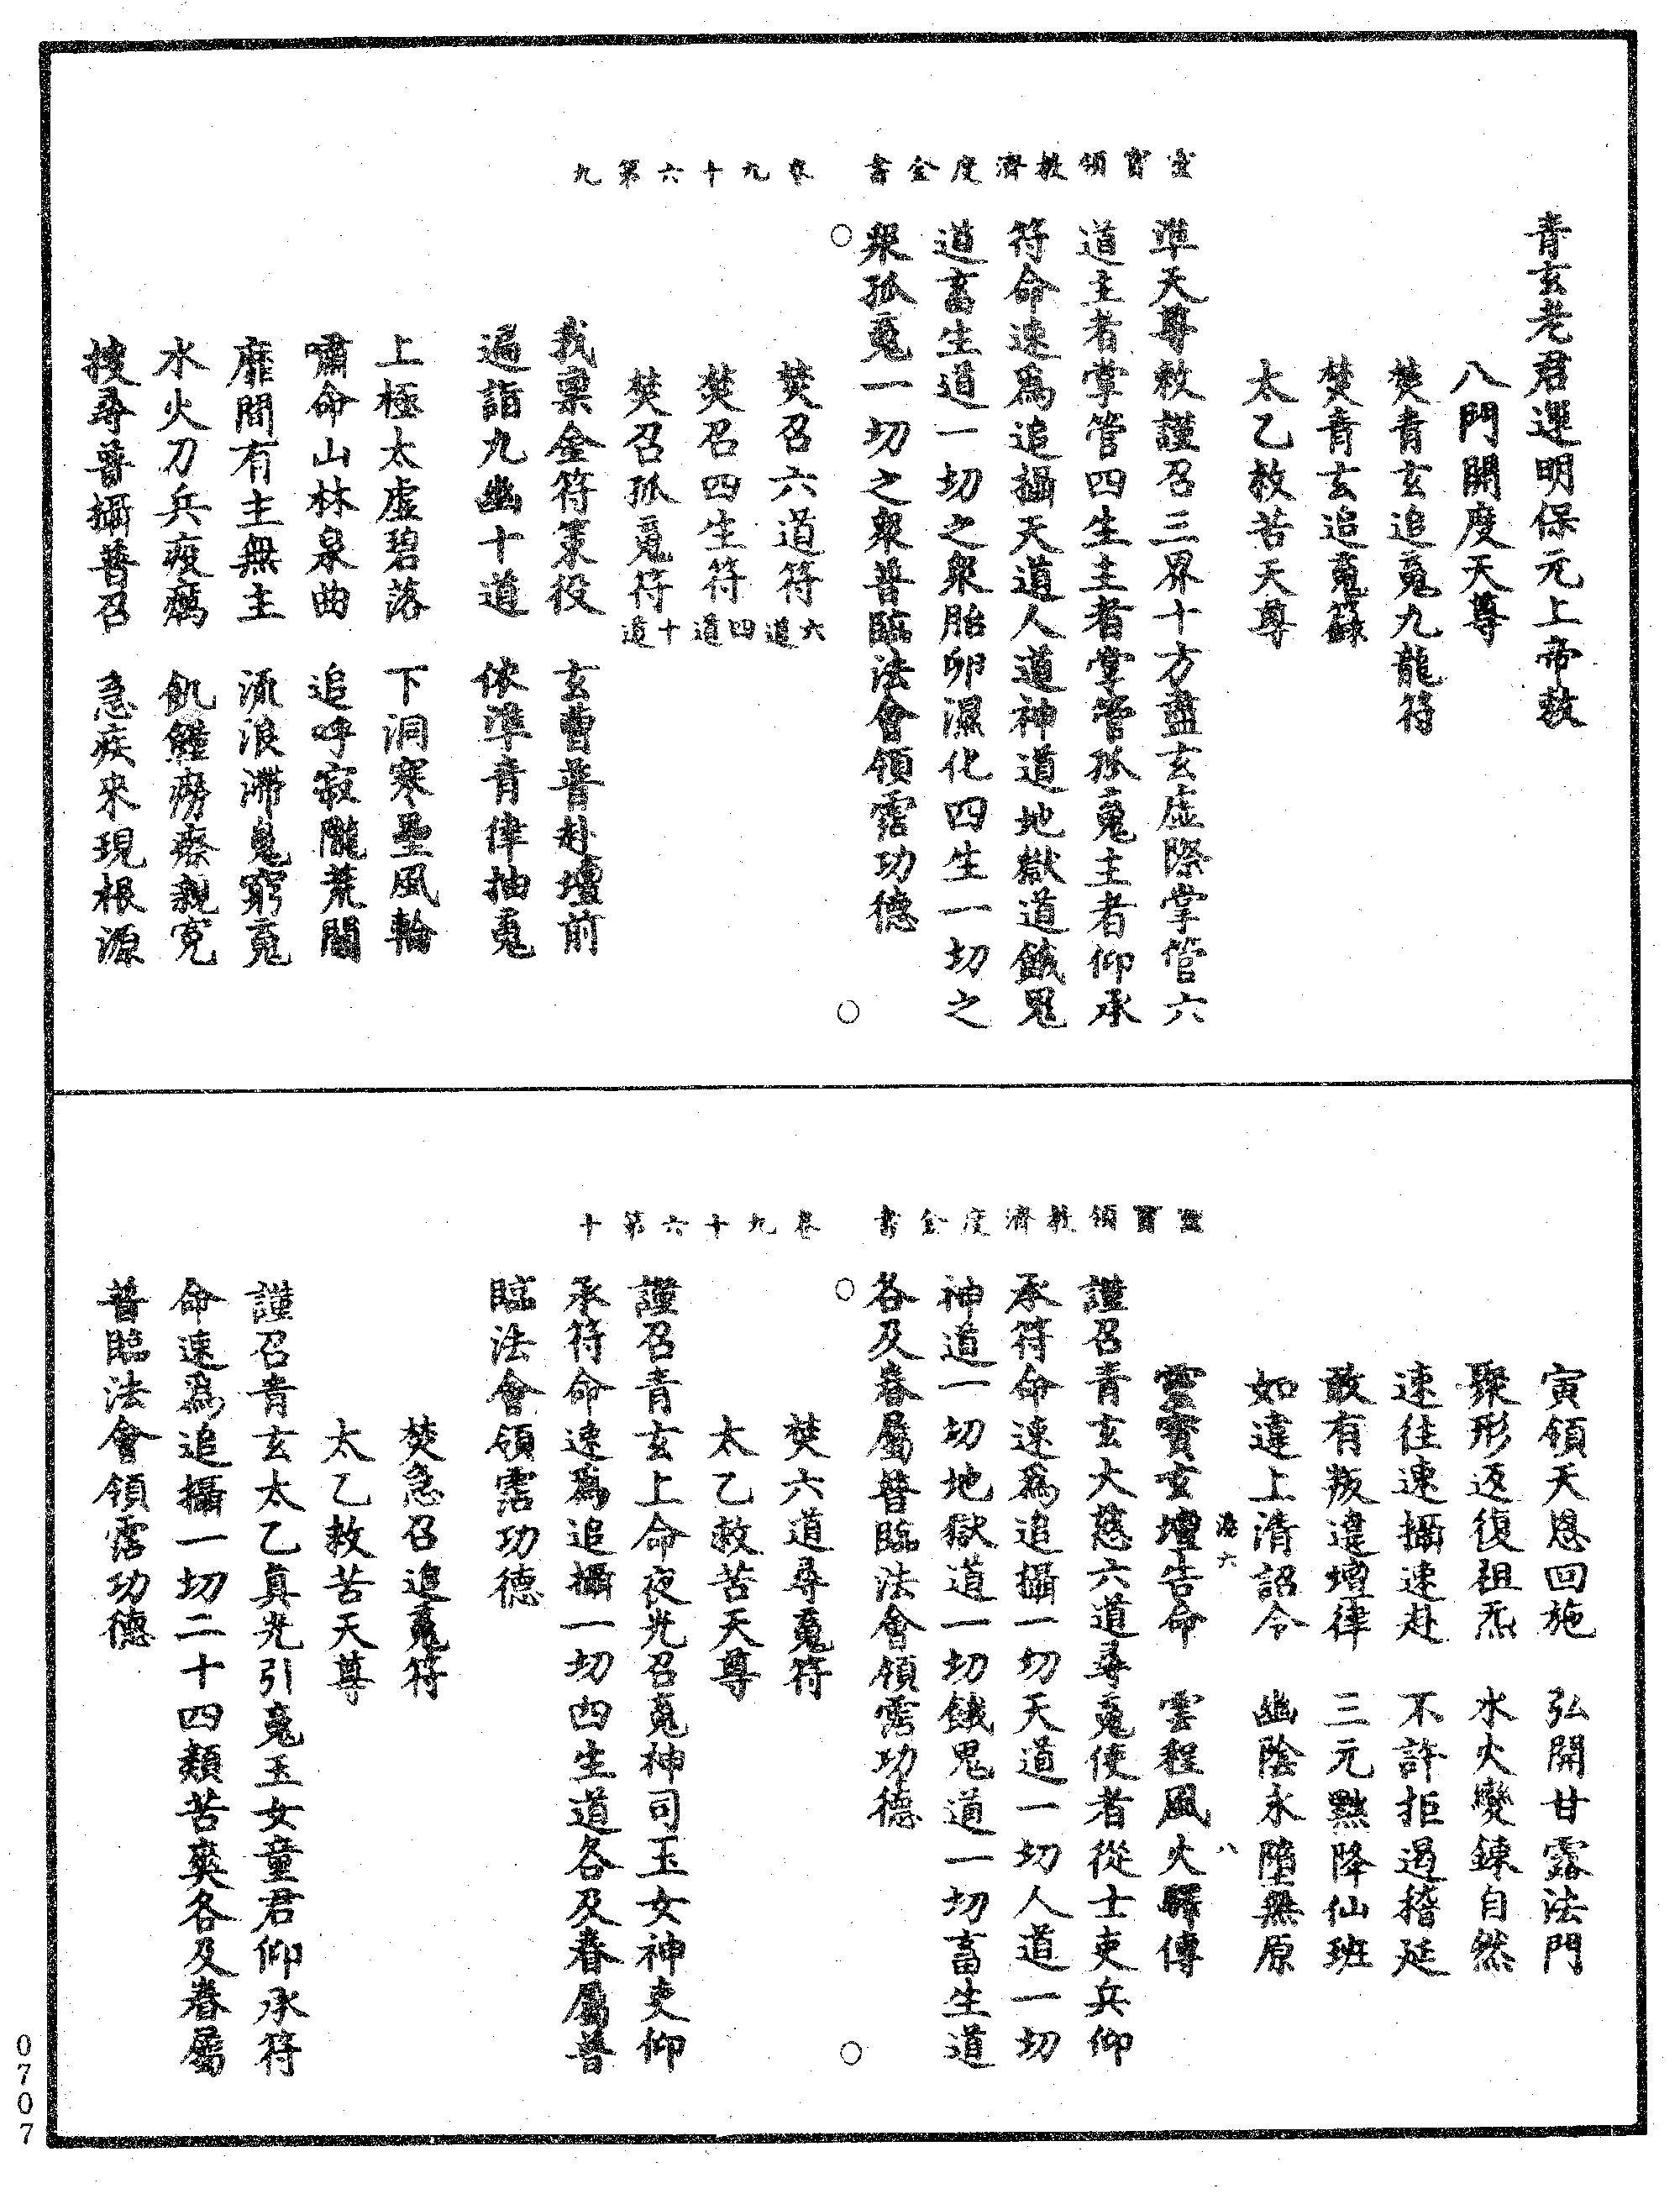 靈寶領教濟度金書　卷九十六第九
青玄老君運明保元上帝敕
八門開度天尊
焚青玄追䰟九龍符
焚青玄追䰟籙
太乙救苦天尊
準天尊敕謹召三界十方盡玄虛際掌管六
道主者掌管四生主者掌管孤䰟主者仰承
符命速爲追攝天道人道神道地獄道餓鬼
道畜生道一切之衆胎卵濕化四生一切之
衆孤䰟一切之衆普臨法會領霑功德
焚召六道符六道
焚召四生符四道
焚召孤䰟符十道
我稟金符策役　玄曹普赴壇前
遍詣九幽十道　依準青律抽䰟
上極太虛碧落　下洞寒壘風輪
嘯命山林泉曲　追呼寂隴荒關
靡間有主無主　流浪滯鬼窮䰟
水火刀兵疫癘　飢饉癆瘵親寃
搜尋普攝普召　急疾來現根源
靈寶領教濟度金書　卷九十六第十
寅領天恩回施　弘開甘露法門
聚形返復祖炁　水火變鍊自然
速往速攝速赴　不許拒遏稽延
敢有叛違壇律　三元黜降仙班
如違上清詔令　幽陰永墮無原
六　八
靈寶玄壇告命　雲程風火驛傳
謹召青玄大慈六道尋䰟使者從士吏兵仰
承符命速爲追攝一切天道一切人道一切
神道一切地獄道一切餓鬼道一切畜生道
各及眷屬普臨法會領霑功德
焚六道尋䰟符
太乙救苦天尊
謹召青玄上命夜光召䰟神司玉女神吏仰
承符命速爲追攝一切四生道各及眷屬普
臨法會領霑功德
焚急召追䰟符
太乙救苦天尊
謹召青玄太乙眞光引䰟玉女童君仰承符
命速爲追攝一切二十四類苦爽各及眷屬
普臨法會領霑功德
0707